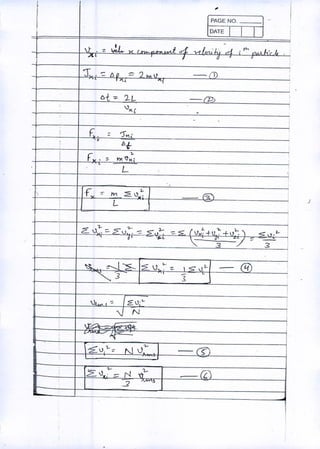 PAGE NO.
DATE
v_xi = x component of velocity of i^th particle.
J_xi = Δp_xi = 2mv_xi —①
Δt = 2L / v_xi —②
F_xi = J_xi / Δt
F_xi = m v_xi² / L
F_x = m Σv_xi² / L —③
Σv_xi² = Σv_yi² = Σv_zi² = Σ(v_xi² + v_yi² + v_zi² / 3) = Σv_i² / 3
Σv_xi² = 1 Σv_i² / 3 —④
v_rms = √(Σv_i² / N)
Σv_i² = N v_rms² —⑤
Σv_xi² = N / 3 v_rms² —⑥